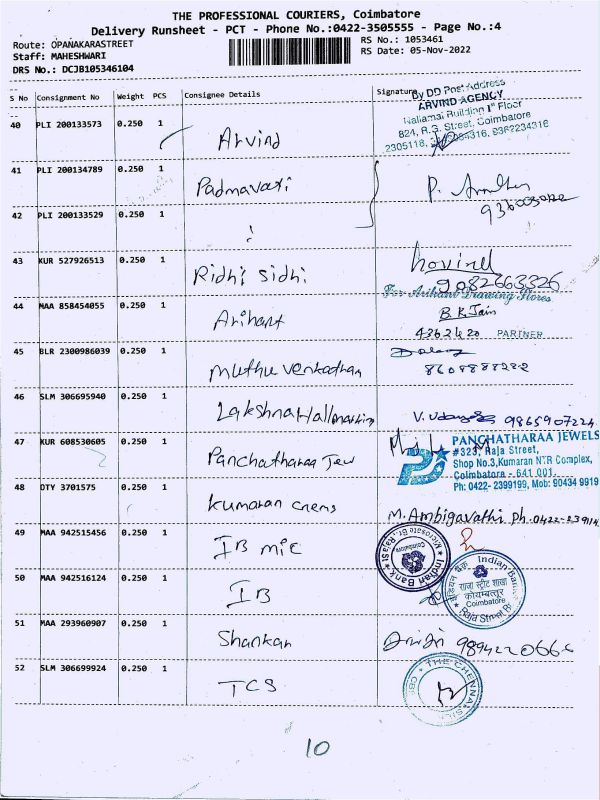 THE PROFESSIONAL COURIERS, Coimbatore
Delivery Runsheet - PCT - Phone No.:0422-3505555 - Page No.:4
Route: OPANAKARASTREET
RS No.: 1053461
Staff: MAHESHWARI
RS Date: 05-Nov-2022
DRS No.: DCJB105346104
S No Consignment No Weight PCS Consignee Details Signature
By DD Post Address
ARVIND AGENCY
Nallamai Building 1st Floor
824, R.G. Street, Coimbatore
2305116, 9362234316
40 PLI 200133573 0.250 1 Arvind
41 PLI 200134789 0.250 1 Padmavati P.
42 PLI 200133529 0.250 1
43 KUR 527926513 0.250 1 Ridhi Sidhi 9082663326
For Arihant Drawing Stores
44 MAA 858454055 0.250 1 Arihant B.K Jain
4362420 PARTNER
45 BLR 2300986039 0.250 1 muthu venkadhan
8608888222
46 SLM 306695940 0.250 1 V. 9865907224
47 KUR 608530605 0.250 1 Panchatharaa Jew
PANCHATHARAA JEWELS
#323, Raja Street,
Shop No.3,Kumaran NTR Complex,
Coimbatore - 641 001.
Ph: 0422- 2399199, Mob: 90434 9919
48 DTY 3701575 0.250 1 kumaran M. Ambigavathi Ph. 0422-
49 MAA 942515456 0.250 1 IB mic
Indian Bank
50 MAA 942516124 0.250 1 IB
इंडियन बैंक Indian Bank
राजा स्ट्रीट शाखा
कोयम्बत्तूर
Coimbatore
Raja Street
51 MAA 293960907 0.250 1 Shankar
52 SLM 306699924 0.250 1 TCS
THE CHENNAI
10